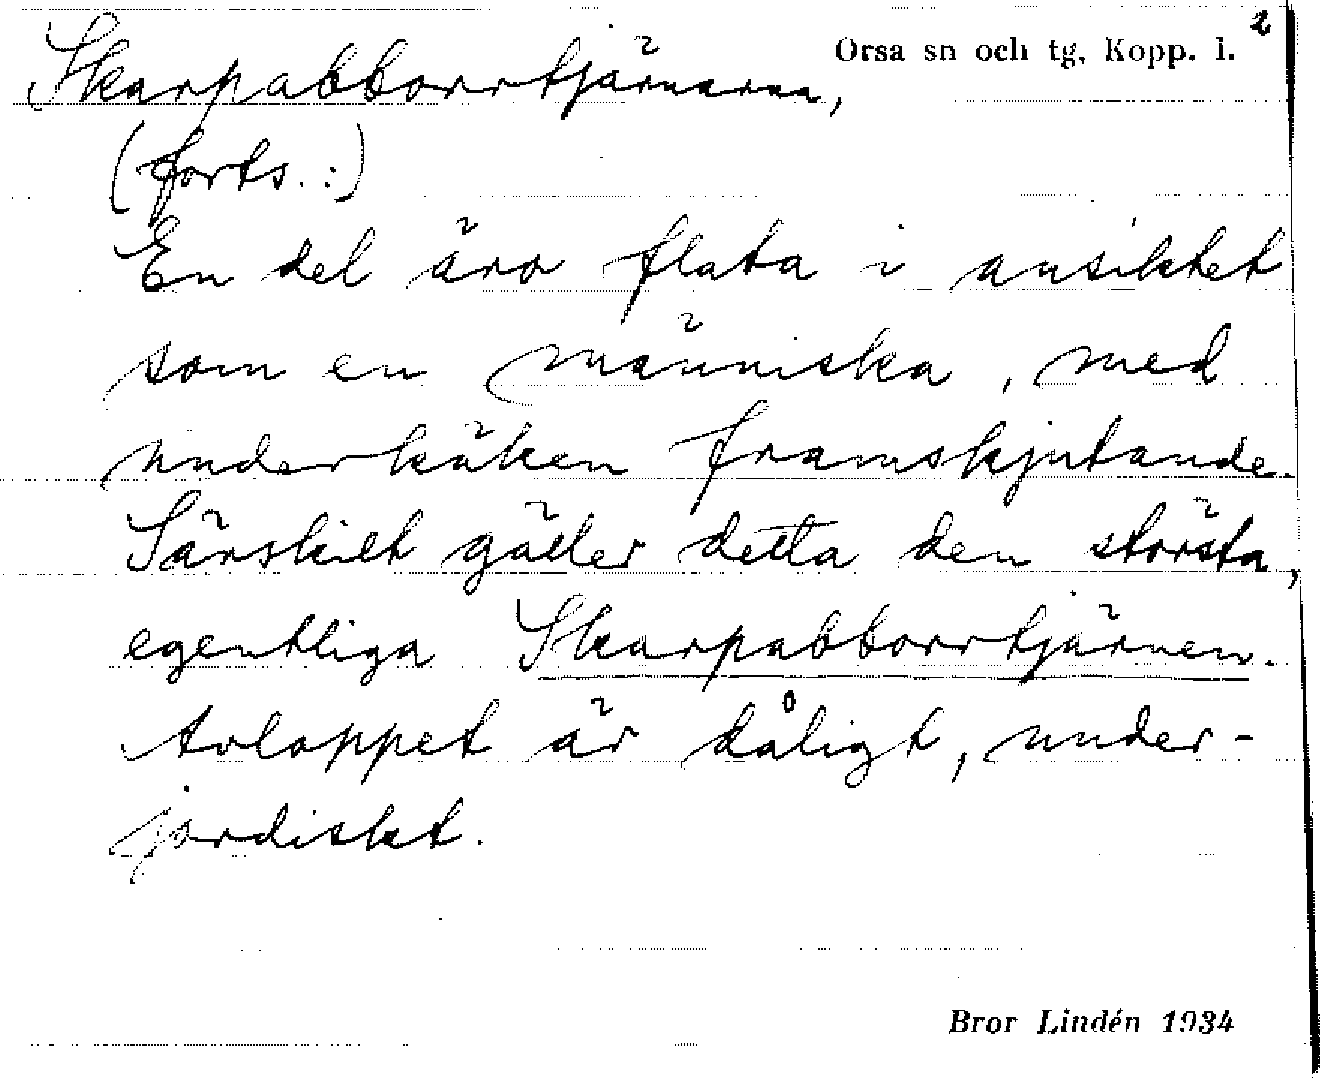 2
Skarpabborrtjärnarna, Orsa sn och tg, Kopp. l.
(forts.:)
En del äro flata i ansiktet
som en människa, med
underkäken framskjutande.
Särskilt gäller detta den största,
egentliga Skarpabborrtjärnen.
Avloppet är dåligt, under-
jordiskt.
Bror Lindén 1934